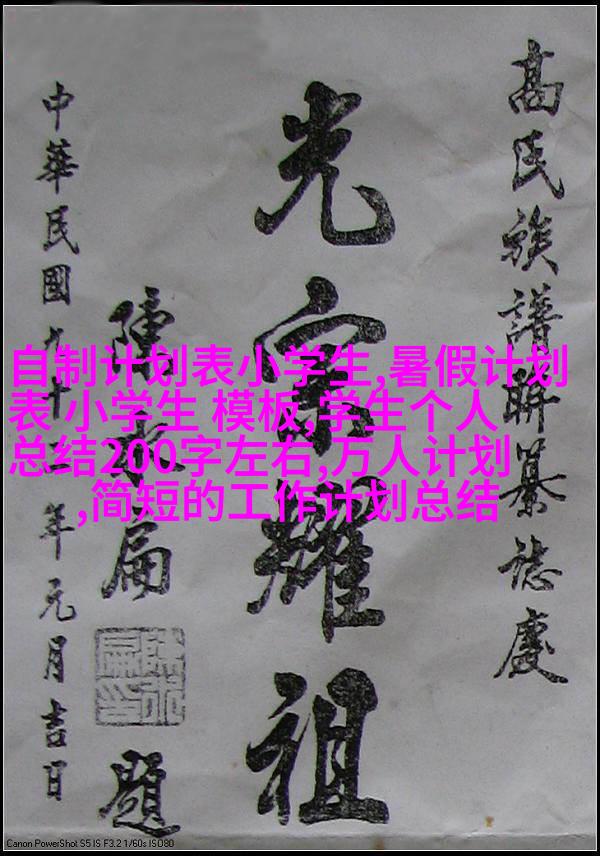 高氏族譜聯纂誌慶
光宗耀祖
陳水扁
題
中華民國九十二年元月吉日
自制计划表小学生,暑假计划
表 小学生 模板,学生个人
总结200字左右,万人计划
,简短的工作计划总结
Canon PowerShot S5 IS F3.2 1/60s ISO80